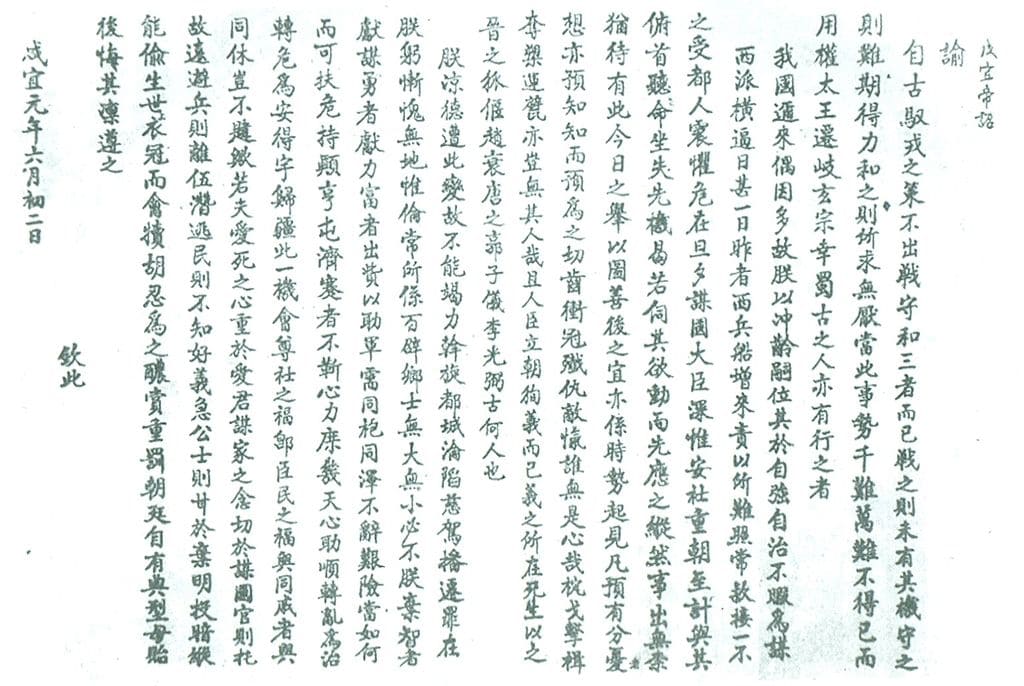 咸宜帝詔
諭
自古馭戎之策不出戰守和三者而已戰之則未有其機守之
則難期得力和之則所求無厭當此事勢千難萬難不得已而
用權太王遷岐玄宗幸蜀古之人亦有行之者
我國邇來偶因多故朕以沖齡嗣位其於自強自治不暇為謀
西派橫逼日甚一日昨者西兵船增來責以所難照常款接一不
之受都人震懼危在旦夕謀國大臣深惟安社重朝至計與其
俯首聽命坐失先機曷若伺其欲動而先應之縱然事出無柰
猶待有此今日之舉以圖善後之宜亦係時勢起見凡預有分憂
想亦預知知而預為之切齒衝冠殲仇敵愾誰無是心哉枕戈擊楫
奪槊運甓亦豈無其人哉且人臣立朝徇義而已義之所在死生以之
晉之狐偃趙衰唐之郭子儀李光弼古何人也
朕涼德遭此變故不能竭力幹旋都城淪陷慈駕播遷罪在
朕躬慚愧無地惟倫常所係百辟鄉士無大無小必不朕棄智者
獻謀勇者獻力富者出貲以助軍需同袍同澤不辭艱險當如何
而可扶危持顛亨屯濟蹇者不靳心力庶幾天心助順轉亂為治
轉危為安得宇歸疆此一機會尊社之福即臣民之福與同戚者與
同休豈不韙歟若夫愛死之心重於愛君謀家之念切於謀國官則托
故遠遊兵則離伍潛逃民則不知好義急公士則甘於棄明投暗縱
能偷生世衣冠而禽犢胡忍為之醲賞重罰朝廷自有典型毋貽
後悔其凜遵之
欽此
咸宜元年六月初二日